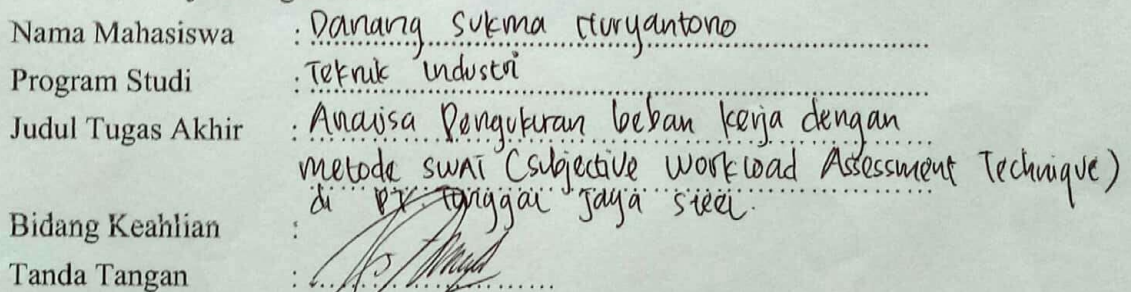 Nama Mahasiswa : Danang Sukma Huryantono
Program Studi : Teknik industri
Judul Tugas Akhir : Analisa Pengukuran beban kerja dengan
metode SWAT (Subjective Workload Assessment Technique)
di PT. Tunggal Jaya Steel.
Bidang Keahlian :
Tanda Tangan :